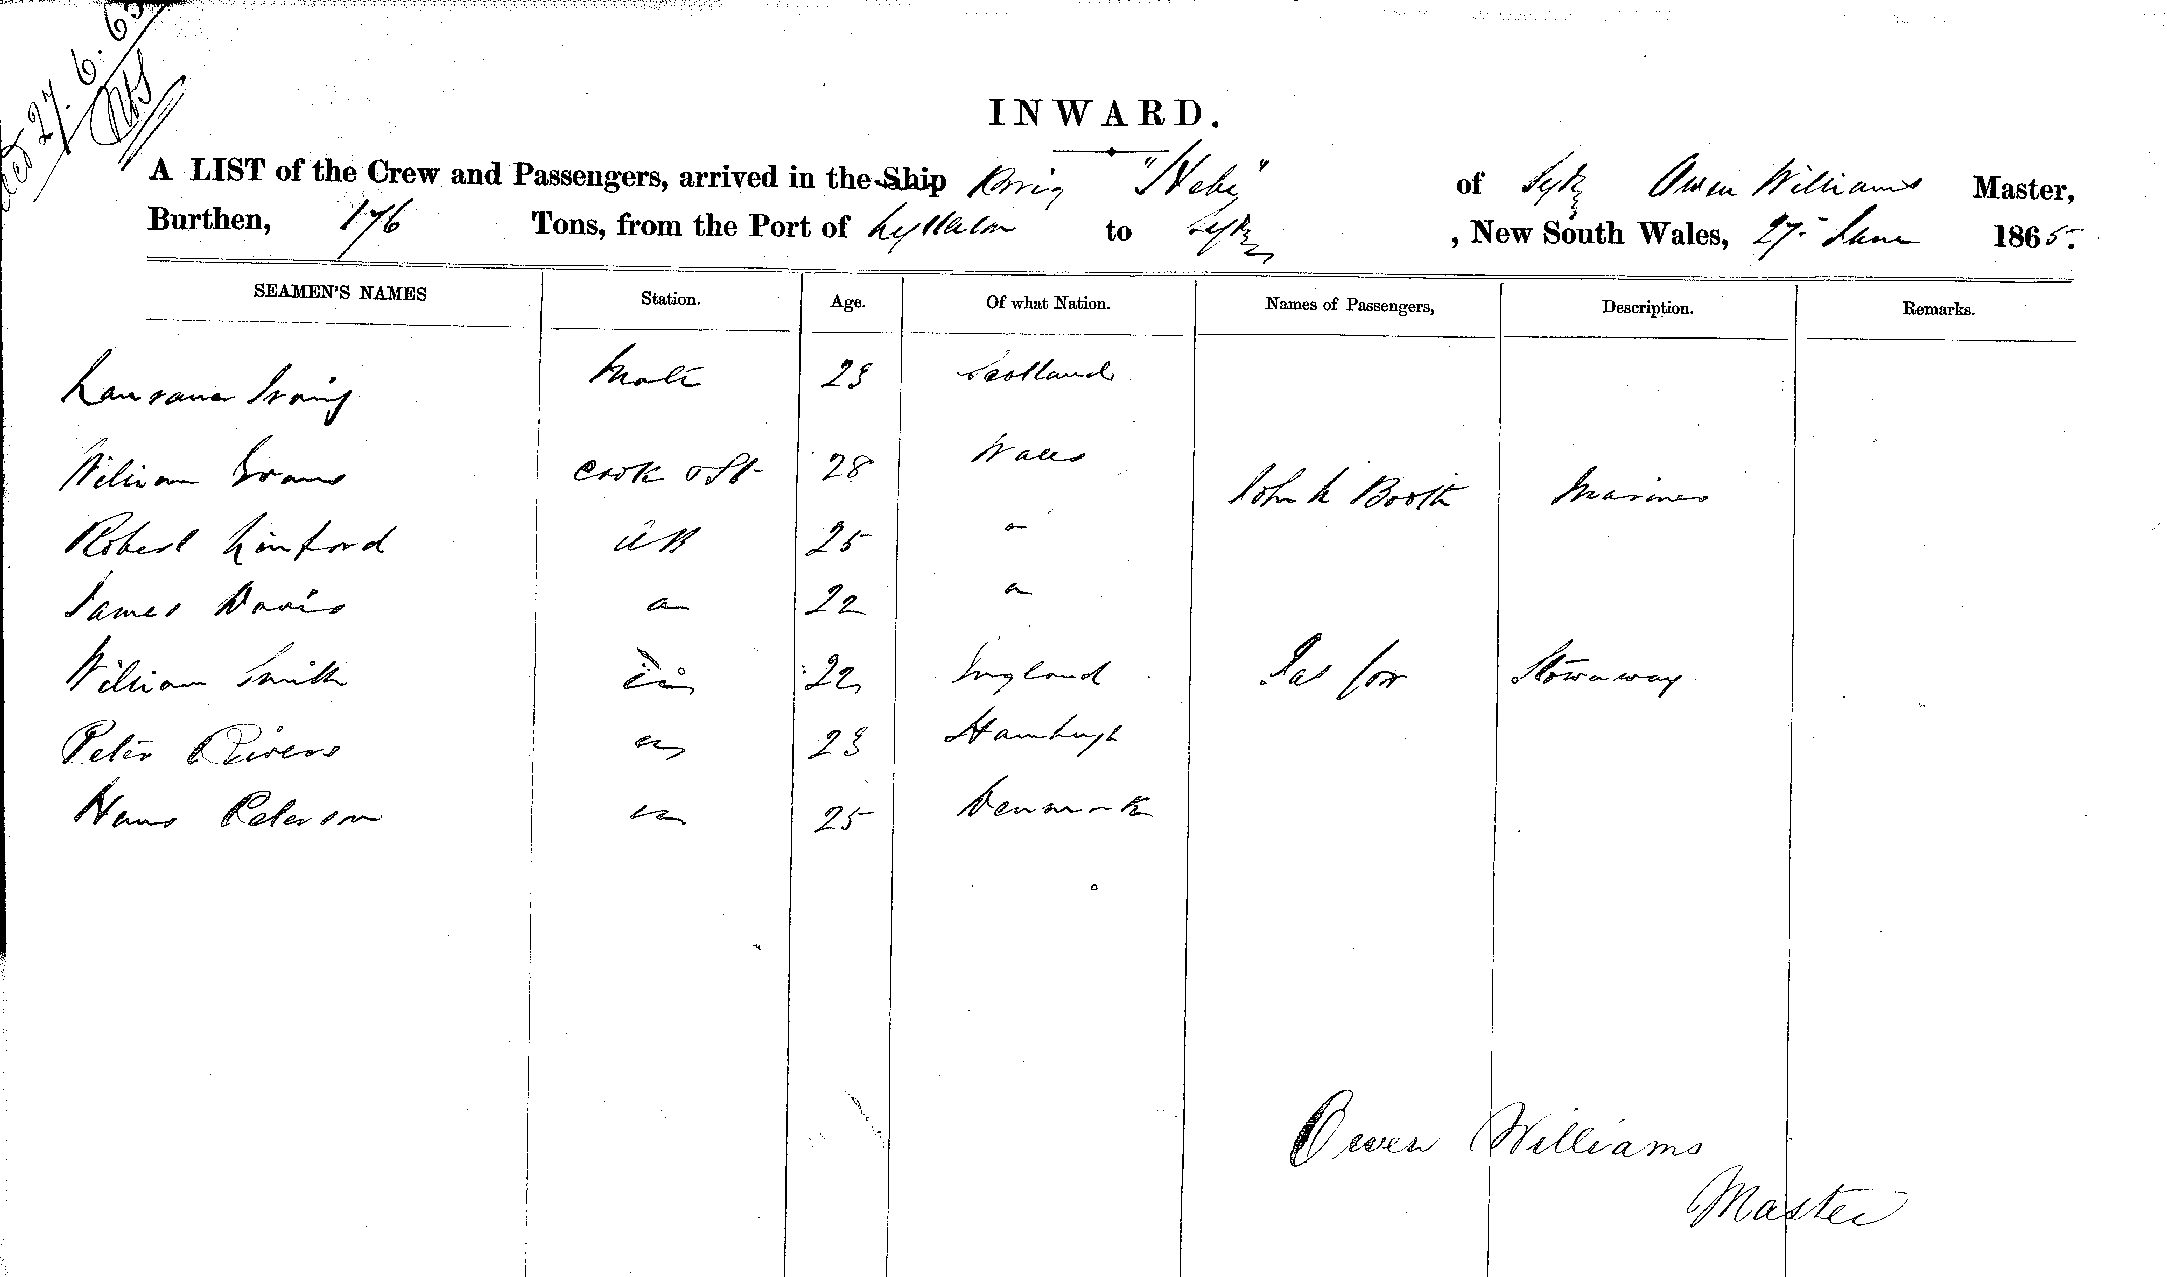 27.6.65
INWARD.
A LIST of the Crew and Passengers, arrived in the Ship Brig "Hebe" of Syd Owen Williams Master,
Burthen, 176 Tons, from the Port of Lyttelton to Syd, New South Wales, 27 June 1865.
SEAMEN'S NAMES Station. Age. Of what Nation. Names of Passengers, Description. Remarks.
Mate 23 Scotland
William Evans Cook & St 28 Wales
John Booth Mariner
Robert Linford AB 25 "
James Davis " 22 "
William Smith " 22 England Jas Stowaway
Peter 23 Hamburgh
Hans Peterson " 25 Denmark
Owen Williams
Master